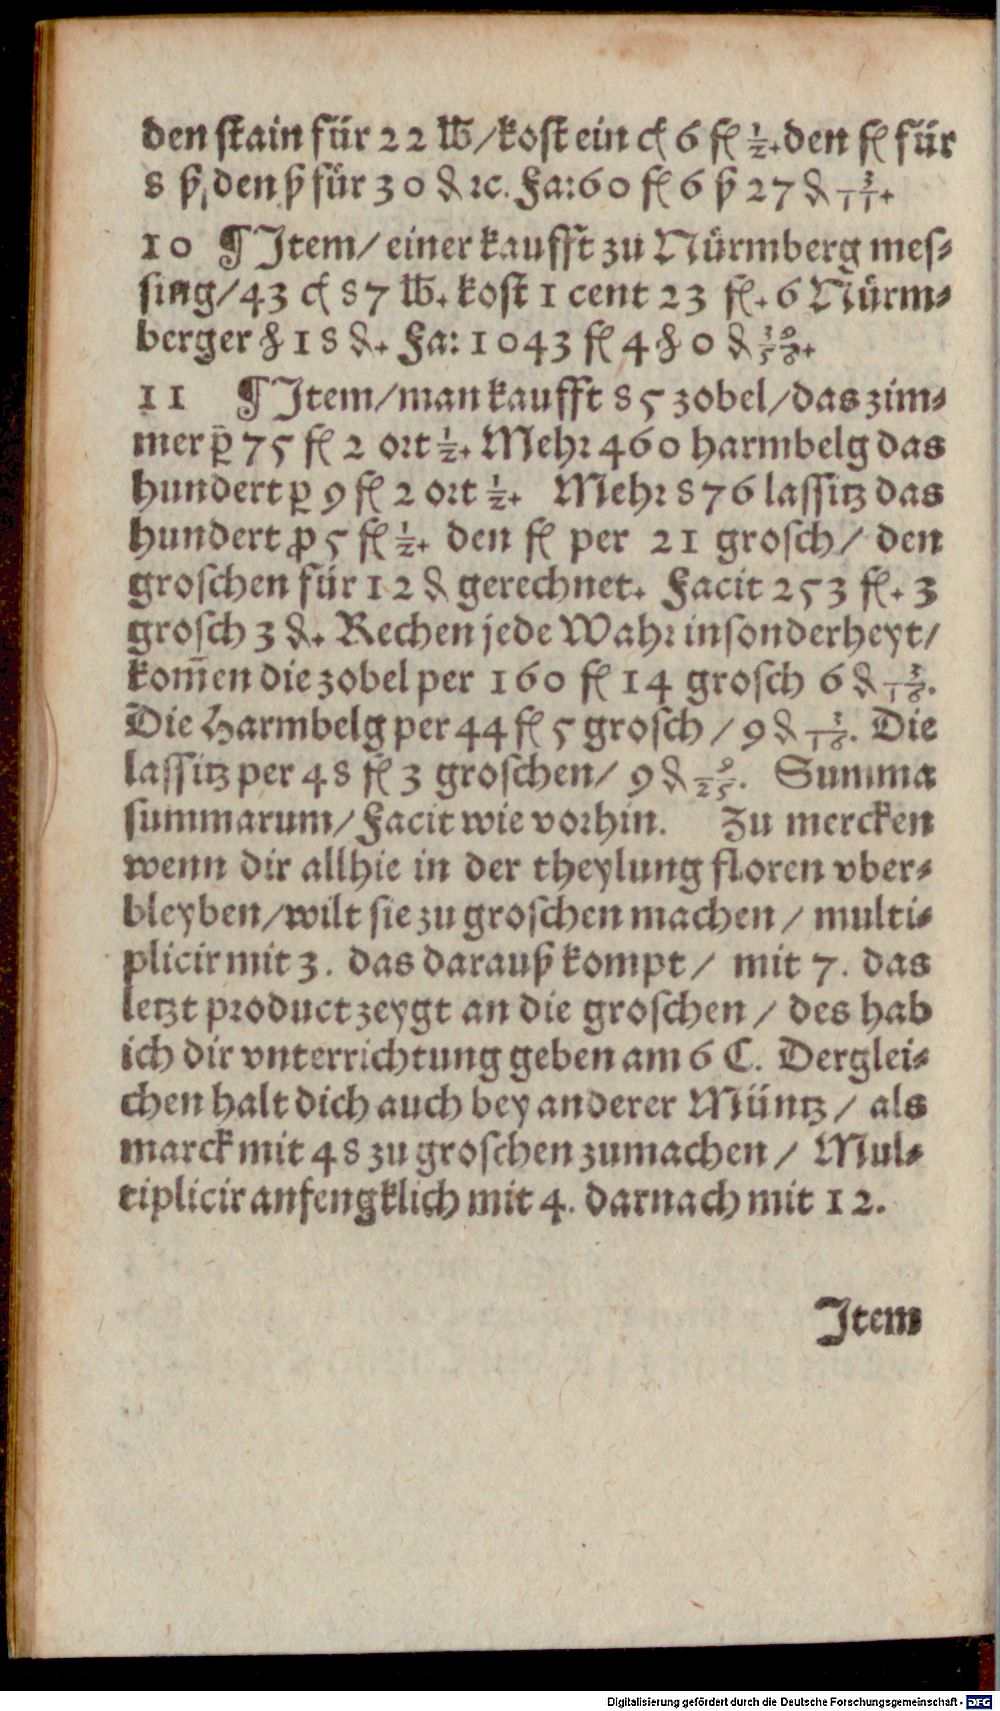 den stain für 22 ℔/kost ein ȼ 6 fl ½. den fl für
8 ß, den ß für 30 ₰ ꝛc. Fa: 60 fl 6 ß 27 ₰ 3/11.
10 ¶ Item/ einer kaufft zu Nürmberg mes⸗
sing/43 ȼ 87 ℔. kost 1 cent 23 fl. 6 Nürm⸗
berger ₰ 18 ₰. Fa: 1043 fl 4 ₰ 0 ₰ 39/50.
11 ¶ Item/man kaufft 85 zobel/das zim⸗
mer p̄ 75 fl 2 ort ½. Mehr 460 harmbelg das
hundert ꝑ 9 fl 2 ort ½. Mehr 876 lassitz das
hundert ꝓ 5 fl ½. den fl per 21 grosch/ den
groschen für 12 ₰ gerechnet. Facit 253 fl. 3
grosch 3 ₰. Rechen jede Wahr insonderheyt/
kom̃en die zobel per 160 fl 14 grosch 6 ₰ 3/16.
Die Harmbelg per 44 fl 5 grosch / 9 ₰ 3/10. Die
lassitz per 48 fl 3 groschen/ 9 ₰ 9/25. Summa
summarum/ Facit wie vorhin. Zu mercken
wenn dir allhie in der theylung floren vber⸗
bleyben/wilt sie zu groschen machen / multi⸗
plicir mit 3. das darauß kompt/ mit 7. das
letzt product zeygt an die groschen / des hab
ich dir vnterrichtung geben am 6 C. Derglei⸗
chen halt dich auch bey anderer Müntz / als
marck mit 48 zu groschen zumachen / Mul⸗
tiplicir anfengklich mit 4. darnach mit 12.
Item
Digitalisierung gefördert durch die Deutsche Forschungsgemeinschaft - DFG